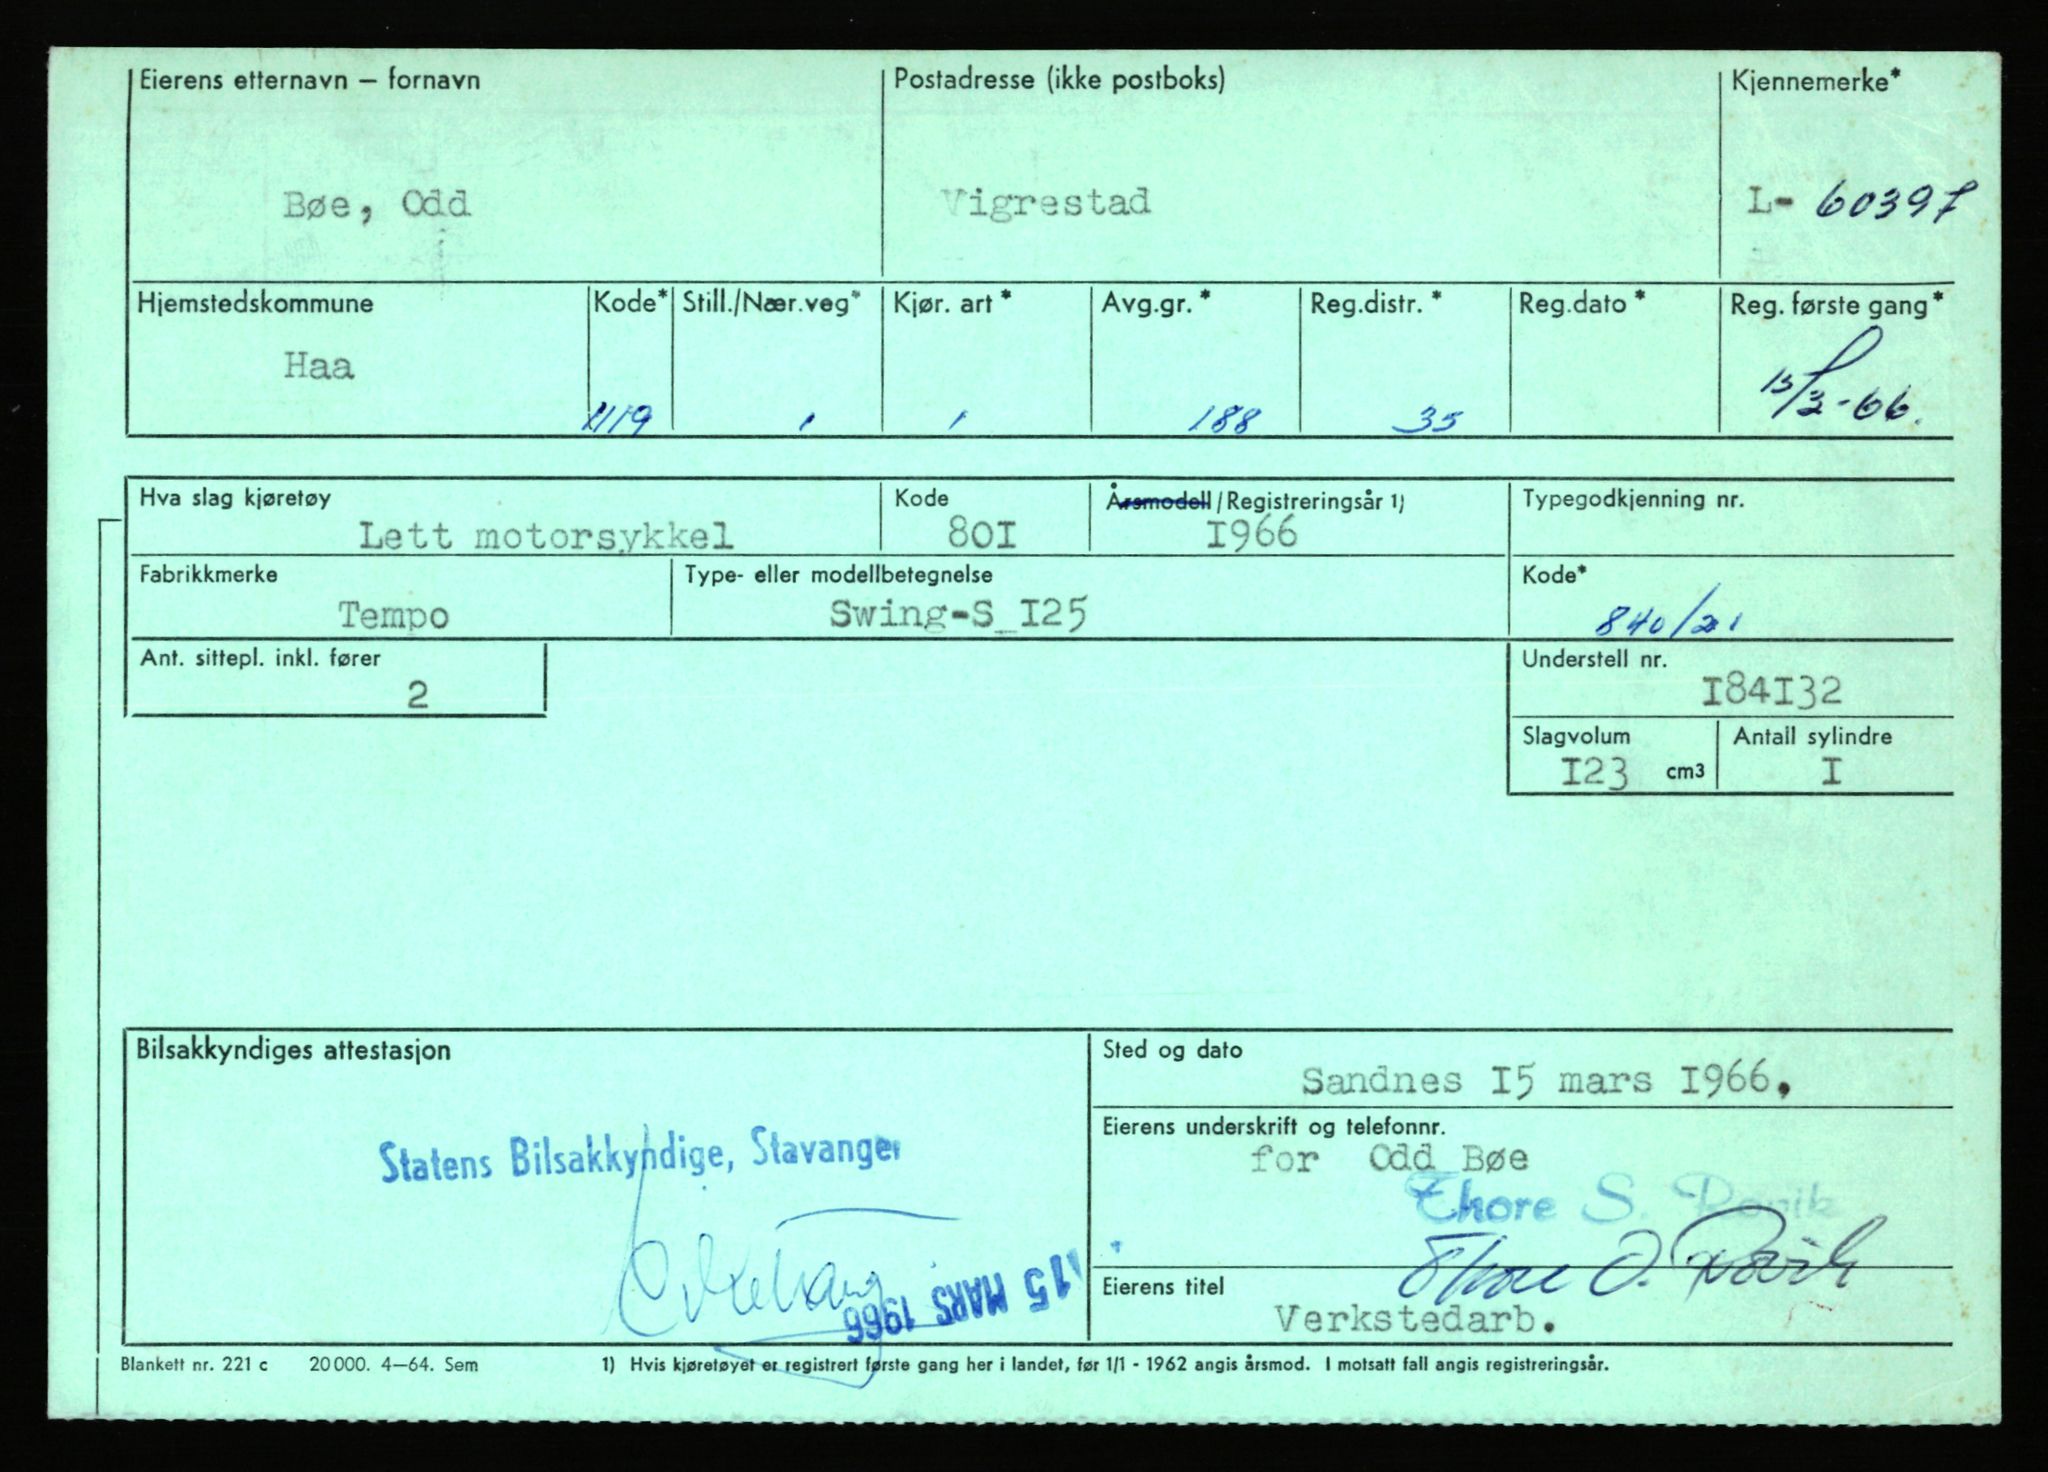 Eierens etternavn – fornavn
Postadresse (ikke postboks)
Kjennemerke*
Bøe, Odd
Vigrestad
L- 60397
Hjemstedskommune
Kode*
Still./Nær.veg*
Kjør. art *
Avg.gr. *
Reg.distr. *
Reg.dato *
Reg. første gang*
Haa
1119
1
1
188
35
15/3-66.
Hva slag kjøretøy
Kode
Årsmodell/Registreringsår 1)
Typegodkjenning nr.
Lett motorsykkel
80I
I966
Fabrikkmerke
Type- eller modellbetegnelse
Kode*
Tempo
Swing-S I25
840/21
Ant. sittepl. inkl. fører
2
Understell nr.
I84I32
Slagvolum
Antall sylindre
I23 cm3
I
Bilsakkyndiges attestasjon
Sted og dato
Sandnes I5 mars I966.
Eierens underskrift og telefonnr.
for Odd Bøe
Statens Bilsakkyndige, Stavanger
Thore S. Rovik
15 MARS 1966
Eierens titel
Verkstedarb.
Blankett nr. 221 c 20 000. 4–64. Sem
1) Hvis kjøretøyet er registrert første gang her i landet, før 1/1 - 1962 angis årsmod. I motsatt fall angis registreringsår.